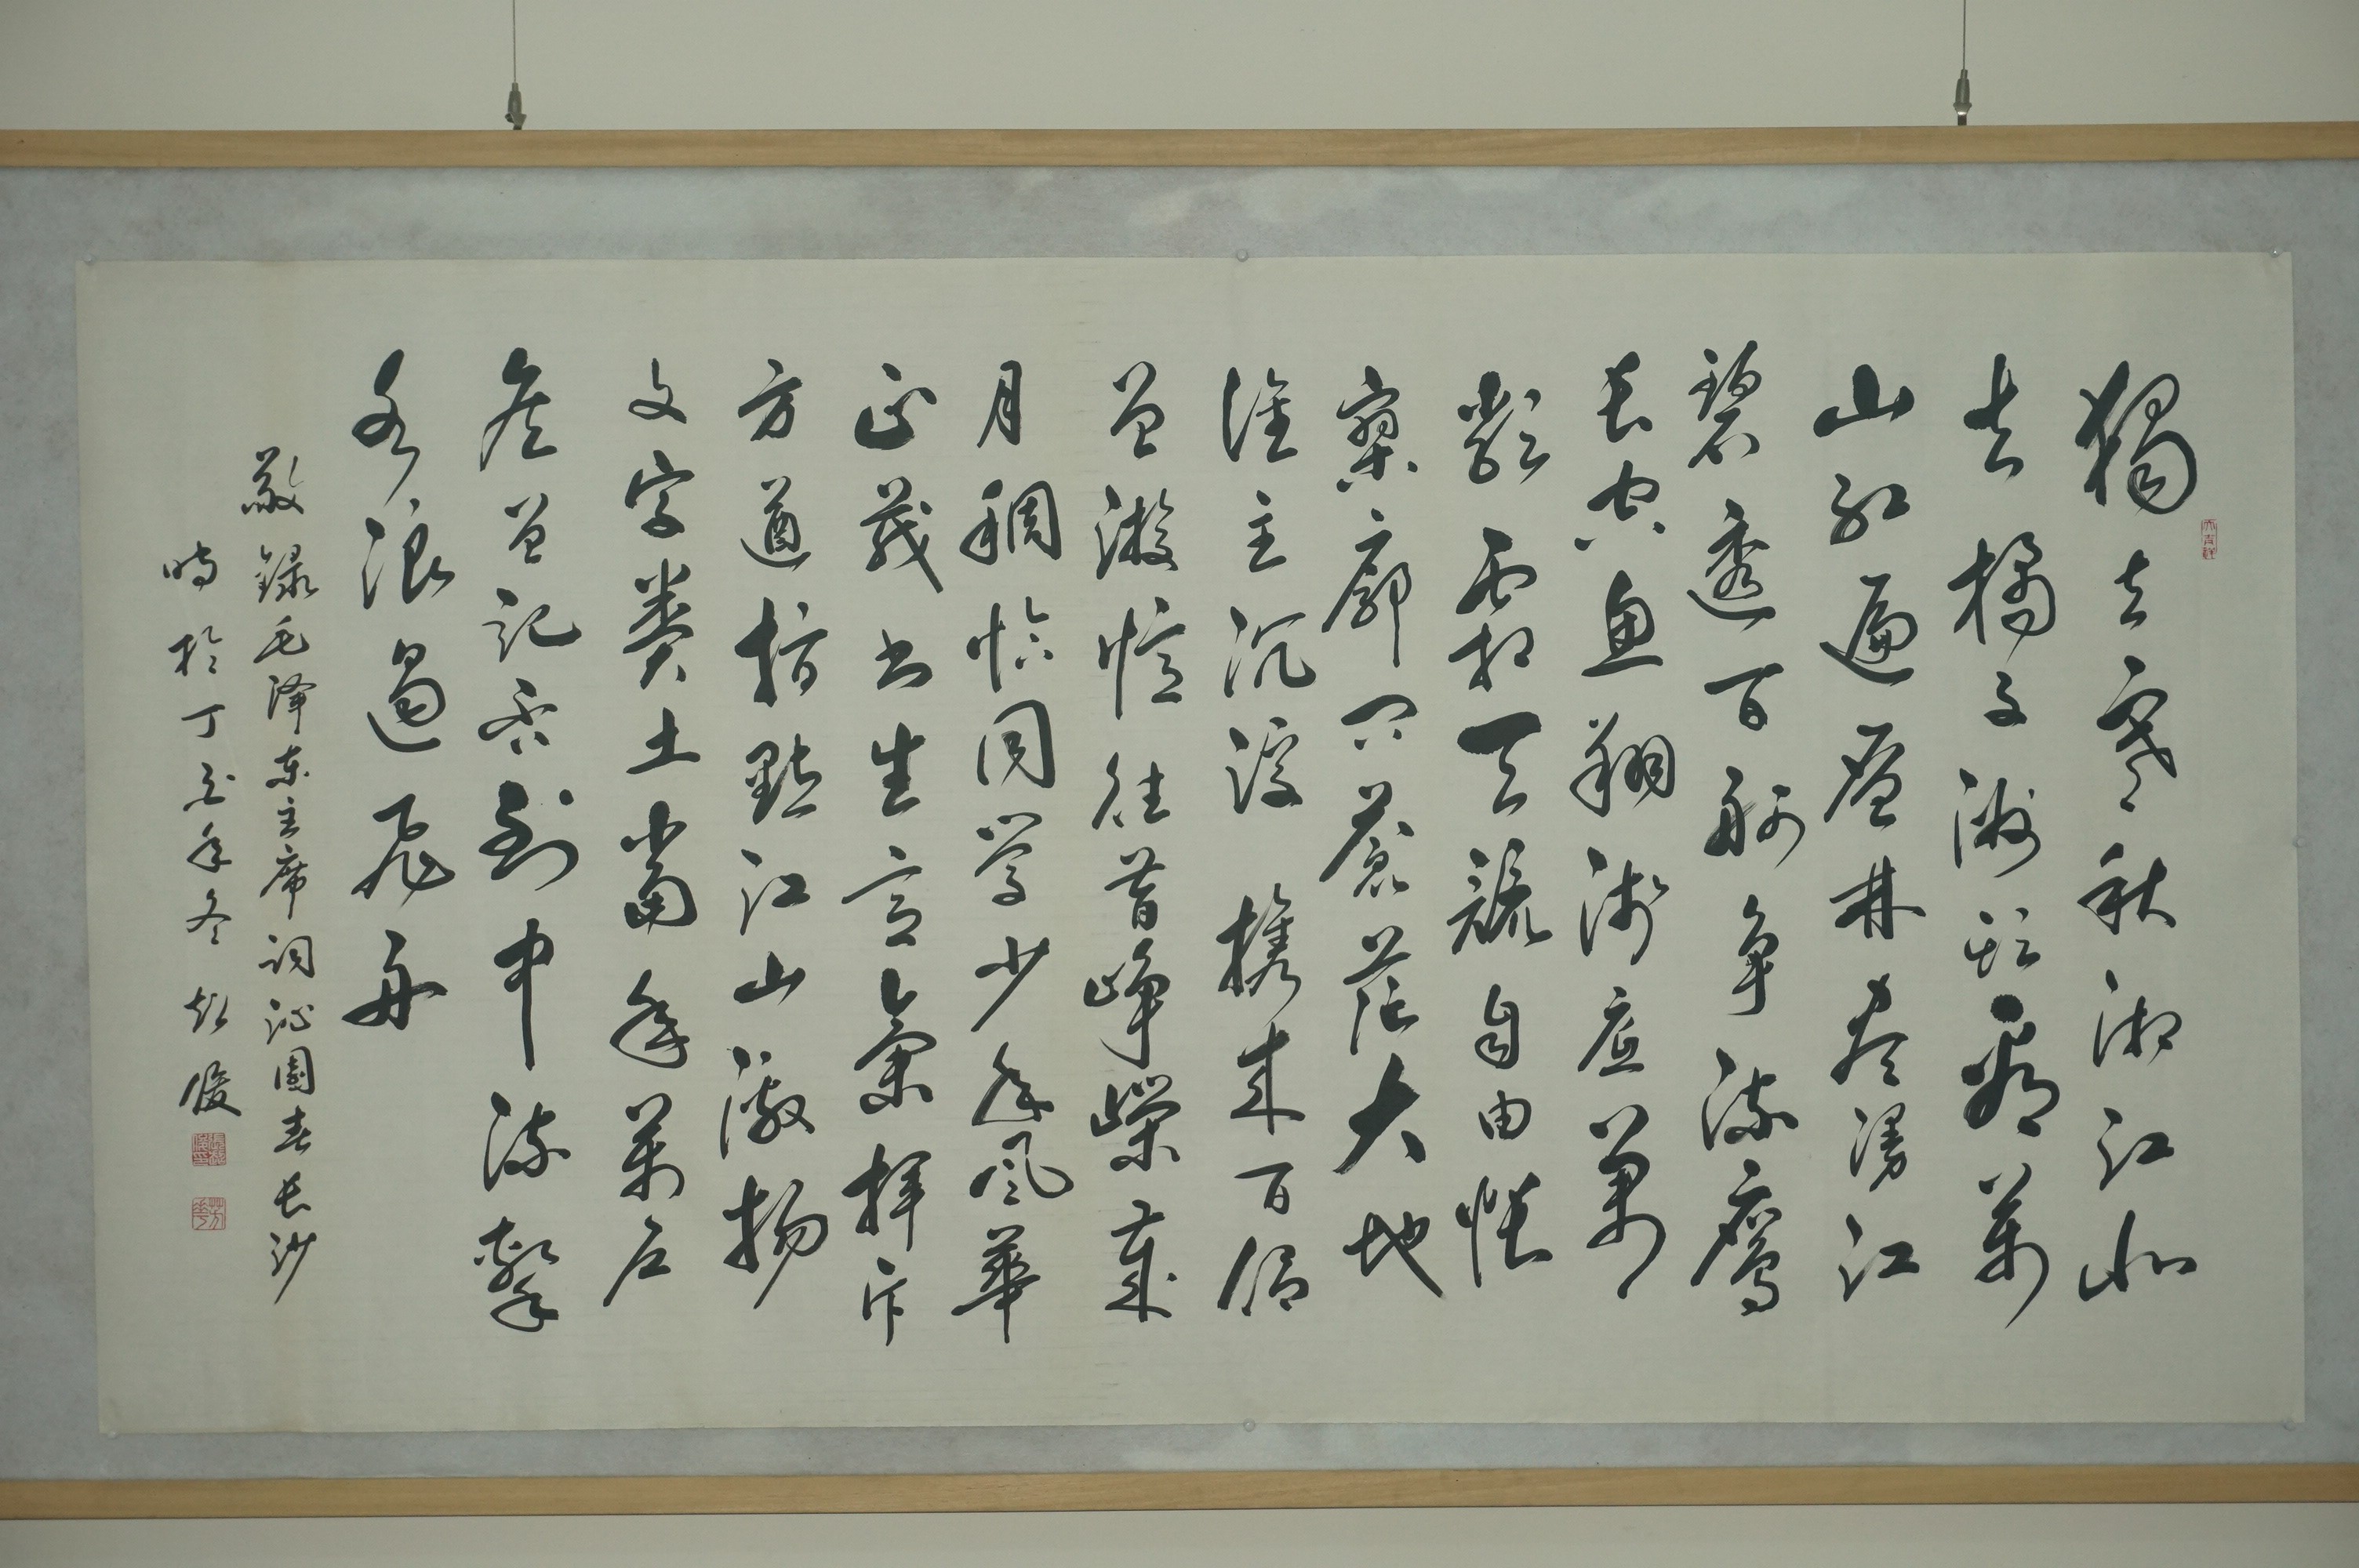 獨立寒秋湘江北
去橘子洲頭看萬
山紅遍層林盡漫江
碧透百舸爭流鷹
長空魚翔淺底萬
類霜天競自由悵
寥廓问蒼茫大地
誰主沉浮攜來百侣
曾遊憶往昔崢嶸歲
月稠恰同學少年風華
正茂书生意氣揮斥
方遒指點江山激揚
文字糞土當年萬户
侯曾記否到中流擊
水浪遏飛舟
敬錄毛泽东主席詞沁園春長沙
時於丁年冬俊